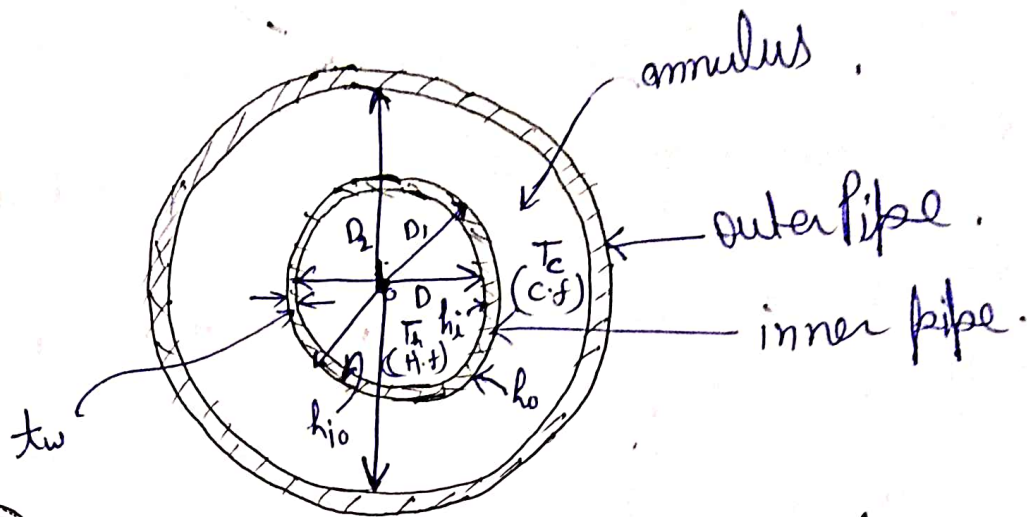 annulus .
outer Pipe .
inner pipe .
D2
D1
Tc
(C.f)
D
hi
Th
(H.f)
ho
hio
tw